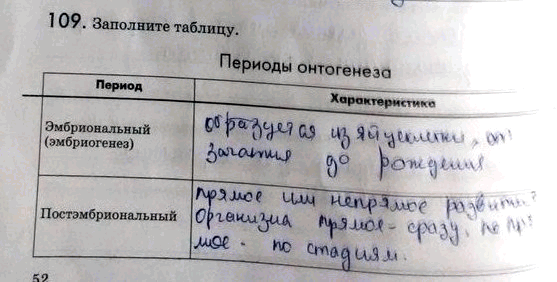 109. Заполните таблицу.
Периоды онтогенеза
Период
Характеристика
Эмбриональный
(эмбриогенез)
образуется из яйцеклетки, от
зачатия до рождения
Постэмбриональный
прямое или непрямое развитие
Организма прямое - сразу,
мое - по стадиям.
52